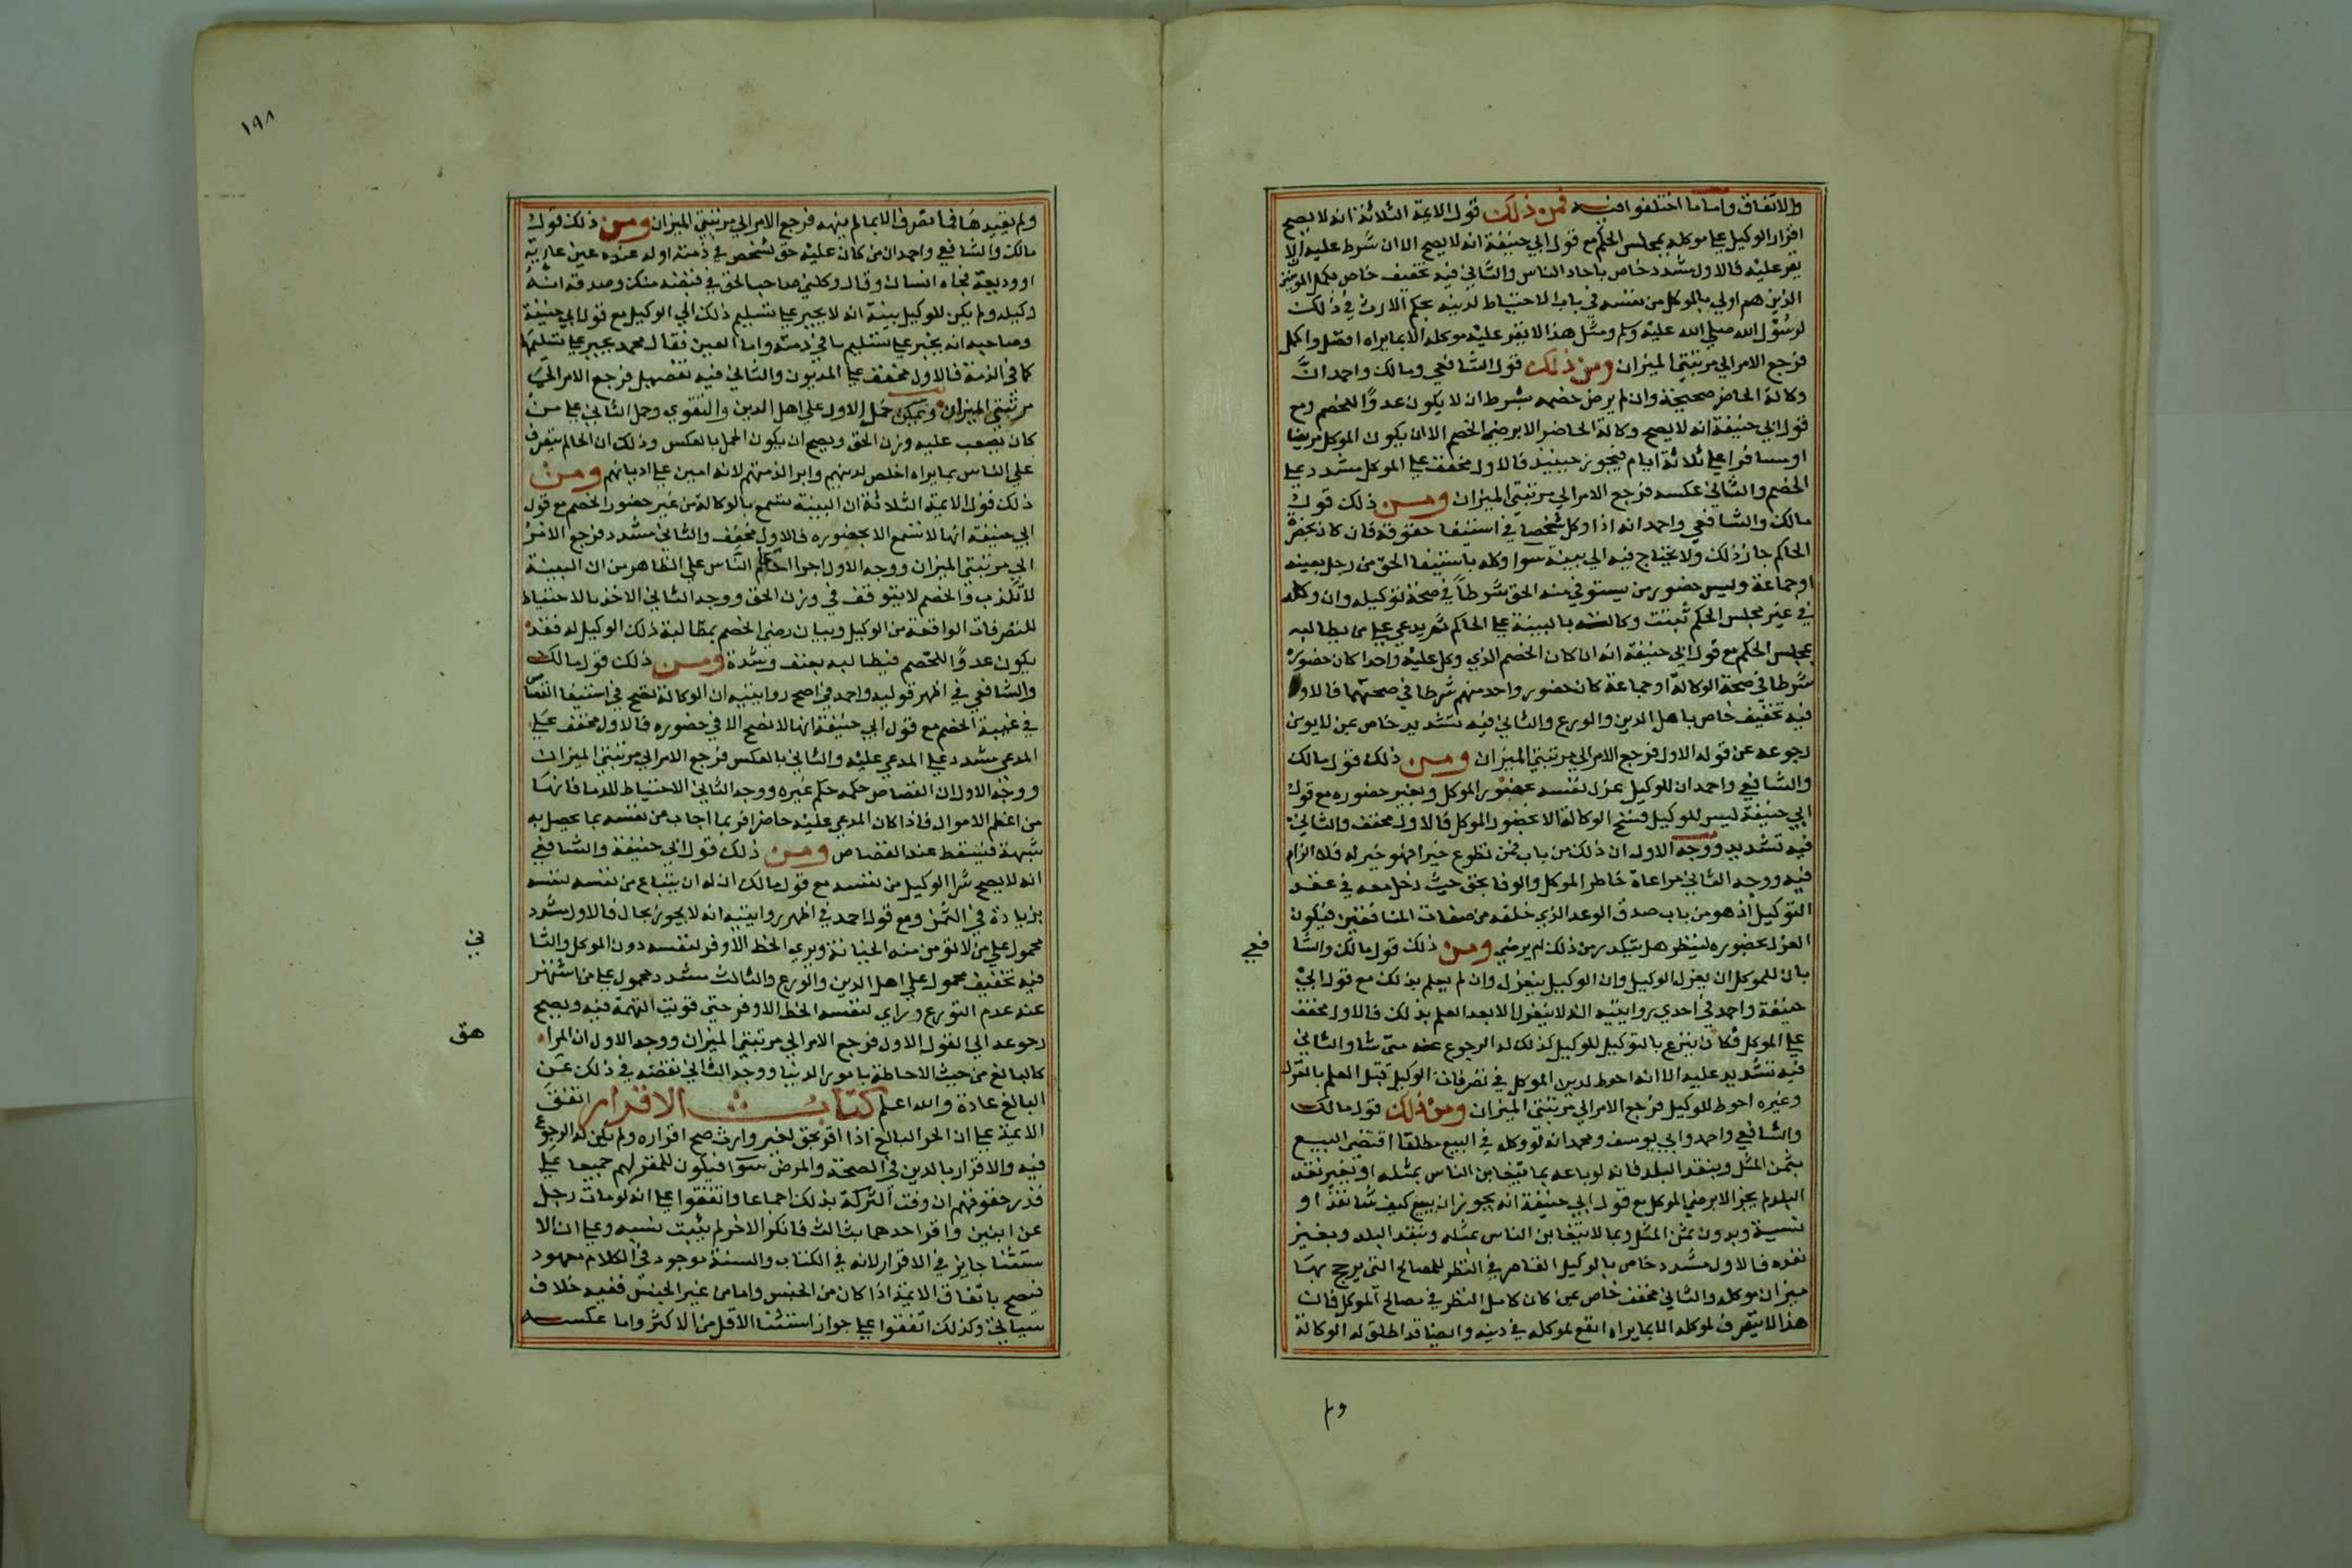 والاتفاق واما ما اختلفوا فيه فمن ذلك قول الايمة الثلاثة انه لا يصح
اقرار الوكيل علي موكله بمجلس الحكم مع قول ابي حنيفة انه لا يصح الا ان شرط عليه الا
يقر عليه فالاول مشدد خاص باحاد الناس والثاني فيه تخفيف خاص بكمل المومنين
الذين هم اولي بالموكل من نفسه في باب الاحتياط لدينه بحكم الارث في ذلك
لرسول الله صلي الله عليه وسلم ومثل هذا لا يقر عليه موكله الا بما يراه افضل واكمل
فرجع الامر الي مرتبتي الميزان ومن ذلك قول الشافعي ومالك واحمد ان
وكالة الحاضر صحيحة وان لم يرض خصمه بشرط ان لا يكون عدوا للخصم ومع
قول ابي حنيفة انه لا يصح وكالة الحاضر الا برضي الخصم الا ان يكون الموكل مريضا
او مسافرا علي ثلاثة ايام فيجوز حينيذ فالاول مخفف علي الموكل مشدد علي
الخصم والثاني عكسه فرجع الامر الي مرتبتي الميزان ومن ذلك قول
مالك والشافعي واحمد انه اذا وكل شخصا في استيفا حقوقه فان كان بحضرة
الحاكم جاز ذلك ولا يحتاج فيه الي بينة سوا وكله باستيفا الحق من رجل بعينه
او جماعة وليس حضور من يستوفي منه الحق شرطا في صحة توكيله وان وكله
في غير مجلس الحكم ثبتت وكالته بالبينة علي الحاكم ثم يدعي علي من يطالبه
بمجلس الحكم مع قول ابي حنيفة انه ان كان الخصم الذي وكل عليه واحدا كان حضوره
شرطا في صحة الوكالة او جماعة كان حضور واحد منهم شرطا في صحتها فالاول
فيه تخفيف خاص باهل الدين والورع والثاني فيه تشديد خاص بمن لا يومن
رجوعه عن قوله الاول فرجع الامر الي مرتبتي الميزان ومن ذلك قول مالك
والشافعي واحمد ان للوكيل عزل نفسه بحضور الموكل وبغير حضوره مع قول
ابي حنيفة ليس للوكيل فسخ الوكالة الا بحضور الموكل فالاول مخفف والثاني
فيه تشديد ووجه الاول ان ذلك من باب فمن تطوع خيرا فهو خير له فلا الزام
فيه ووجه الثاني مراعاة خاطر الموكل والوفا بحق حيث دخل معه في عقد
التوكيل اذ هو من باب صدق الوعد الذي خلفه من صفات المنافقين فيكون
العزل بحضوره لينظر هل يتكدر من ذلك ام يرضي ومن ذلك قول مالك والشا
فعي
بان للموكل ان يعزل الوكيل وان الوكيل ينعزل وان لم يعلم بذلك مع قول ابي
حنيفة واحمد في احدي روايتيه انه لا ينعزل الا بعد العلم بذلك فالاول مخفف
علي الموكل فكان يتبرع بالتوكيل للوكيل كذلك له الرجوع عنه متي شا والثاني
فيه تشديد عليه الا انه احوط لدين الموكل في تصرفات الوكيل قبل العلم بالعزل
وغيره احوط للوكيل فرجع الامر الي مرتبتي الميزان ومن ذلك قول مالك
والشافعي واحمد وابي يوسف ومحمد انه لو وكله في البيع مطلقا اقتضي البيع
بثمن المثل وبنقد البلد فانه لو باعه بما يتغابن الناس بمثله او بغير نقد
البلد لم يجز الا برضي الموكل مع قول ابي حنيفة انه يجوز ان يبيع كيف شا نقدا او
نسية وبدون ثمن المثل وبما لا يتغابن الناس بمثله وبنقد البلد وبغير
نقده فالاول مشدد خاص بالوكيل القاصر في النظر للمصالح التي يرجح بها
ميزان موكله والثاني مخفف خاص بمن كان كامل النظر في مصالح الموكل فان
هذا لا يتصرف لموكله الا بما يراه انفع لموكله في دينه وايضا قد اطلق له الوكالة
ولم
١٩٨
ولم يقيدها فما تصرف الا بما لم ينهه فرجع الامر الي مرتبتي الميزان ومن ذلك قول
مالك والشافعي واحمد ان من كان عليه حق لشخص في ذمته اوله عنده عين عارية
او وديعة فجاه انسان وقال وكلني صاحب الحق في قبضه منك وصدقه انه
وكيله ولم يكن للوكيل بينة انه لا يجبر علي تسليم ذلك الي الوكيل مع قول ابي حنيفة
وصاحبيه انه يجبر علي تسليم ما في ذمته واما العين فقال محمد يجبر علي تسليمها
كما في الذمة فالاول مخفف علي المديون والثاني فيه تفصيل فرجع الامر الي
مرتبتي الميزان ويمكن حمل الاول علي اهل الدين والتقوي وحمل الثاني علي من
كان يصعب عليه وزن الحق ويصح ان يكون الحمل بالعكس وذلك ان الحاكم يتصرف
علي الناس بما يراه اخلص لدينهم وابرا لذمتهم لانه امين علي اديانهم ومن
ذلك قول الايمة الثلاثة ان البينة تسمع بالوكالة من غير حضور الخصم مع قول
ابي حنيفة انها لا تسمع الا بحضوره فالاول مخفف والثاني مشدد فرجع الامر
الي مرتبتي الميزان ووجه الاول اجرا احكام الناس علي الظاهر من ان البينة
لا تكذب والخصم لا يتوقف في وزن الحق ووجه الثاني الاخذ بالاحتياط
للتصرفات الواقعة من الوكيل وبيان رضي الخصم بمطالبة ذلك الوكيل له فقد
يكون عدوا للخصم فيطالبه بعنف وشدة ومن ذلك قول مالك
والشافعي في اظهر قوليه واحمد في اصح روايتيه ان الوكالة تصح في استيفا القصاص
في غيبة الخصم مع قول ابي حنيفة انها لا تصح الا في حضوره فالاول مخفف علي
المدعي مشدد علي المدعي عليه والثاني بالعكس فرجع الامر الي مرتبتي الميزان
ووجه الاول ان القصاص حكمه حكم غيره ووجه الثاني الاحتياط للدما فانها
من اعظم الاموال فاذا كان المدعي عليه حاضرا فربما اجاب عن نفسه بما يحصل به
شبهة فيسقط عنه القصاص ومن ذلك قول ابي حنيفة والشافعي
انه لا يصح شرا الوكيل من نفسه مع قول مالك ان له ان يبتاع من نفسه لنفسه
بزيادة في الثمن ومع قول احمد في اظهر روايتيه انه لا يجوز بحال فالاول مشدد
محمول علي من لا تؤمن منه الخيانة ويري الحظ الاوفر لنفسه دون الموكل والثا
ني
فيه تخفيف محمول علي اهل الدين والورع والثالث مشدد محمول علي من اشتهر
عنه عدم التورع وراي لنفسه الحظ الاوفر حتي قويت التهمة فيه ويصح
رجوعه الي القول الاول فرجع الامر الي مرتبتي الميزان ووجه الاول ان المرا
هق
كالبالغ من حيث الاحاطة بامور الدنيا ووجه الثاني نقصه في ذلك عن
البالغ عادة والله اعلم كتاب الاقرار اتفق
الايمة علي ان الحر البالغ اذا اقر بحق لغير وارث صح اقراره ولم يكن له الرجوع
فيه والاقرار بالدين في الصحة والمرض سوا فيكون للمقر لهم جميعا علي
قدر حقوقهم ان وفت التركة بذلك اجماعا واتفقوا علي انه لو مات رجل
عن ابنين واقر احدهما بثالث فانكر الاخر لم يثبت نسبه وعلي ان الا
ستثنا جايز في الاقرار لانه في الكتاب والسنة موجود في الكلام معهود
فيصح باتفاق الايمة اذا كان من الجنس واما من غير الجنس ففيه خلاف
سياتي وكذلك اتفقوا علي جواز استثنا الاقل من الاكثر واما عكسه